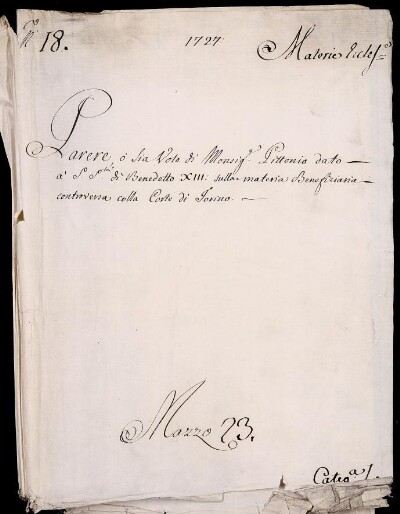 N.º 18.
1727
Materie Eccles.e
Parere, ó sia Voto di Monsig.r Pittonio dato —
a' S. S.tà di Benedetto XIII: sulla materia Benefiziaria —
controversa colla Corte di Torino. —
Mazzo 23.
Categ.a 1.